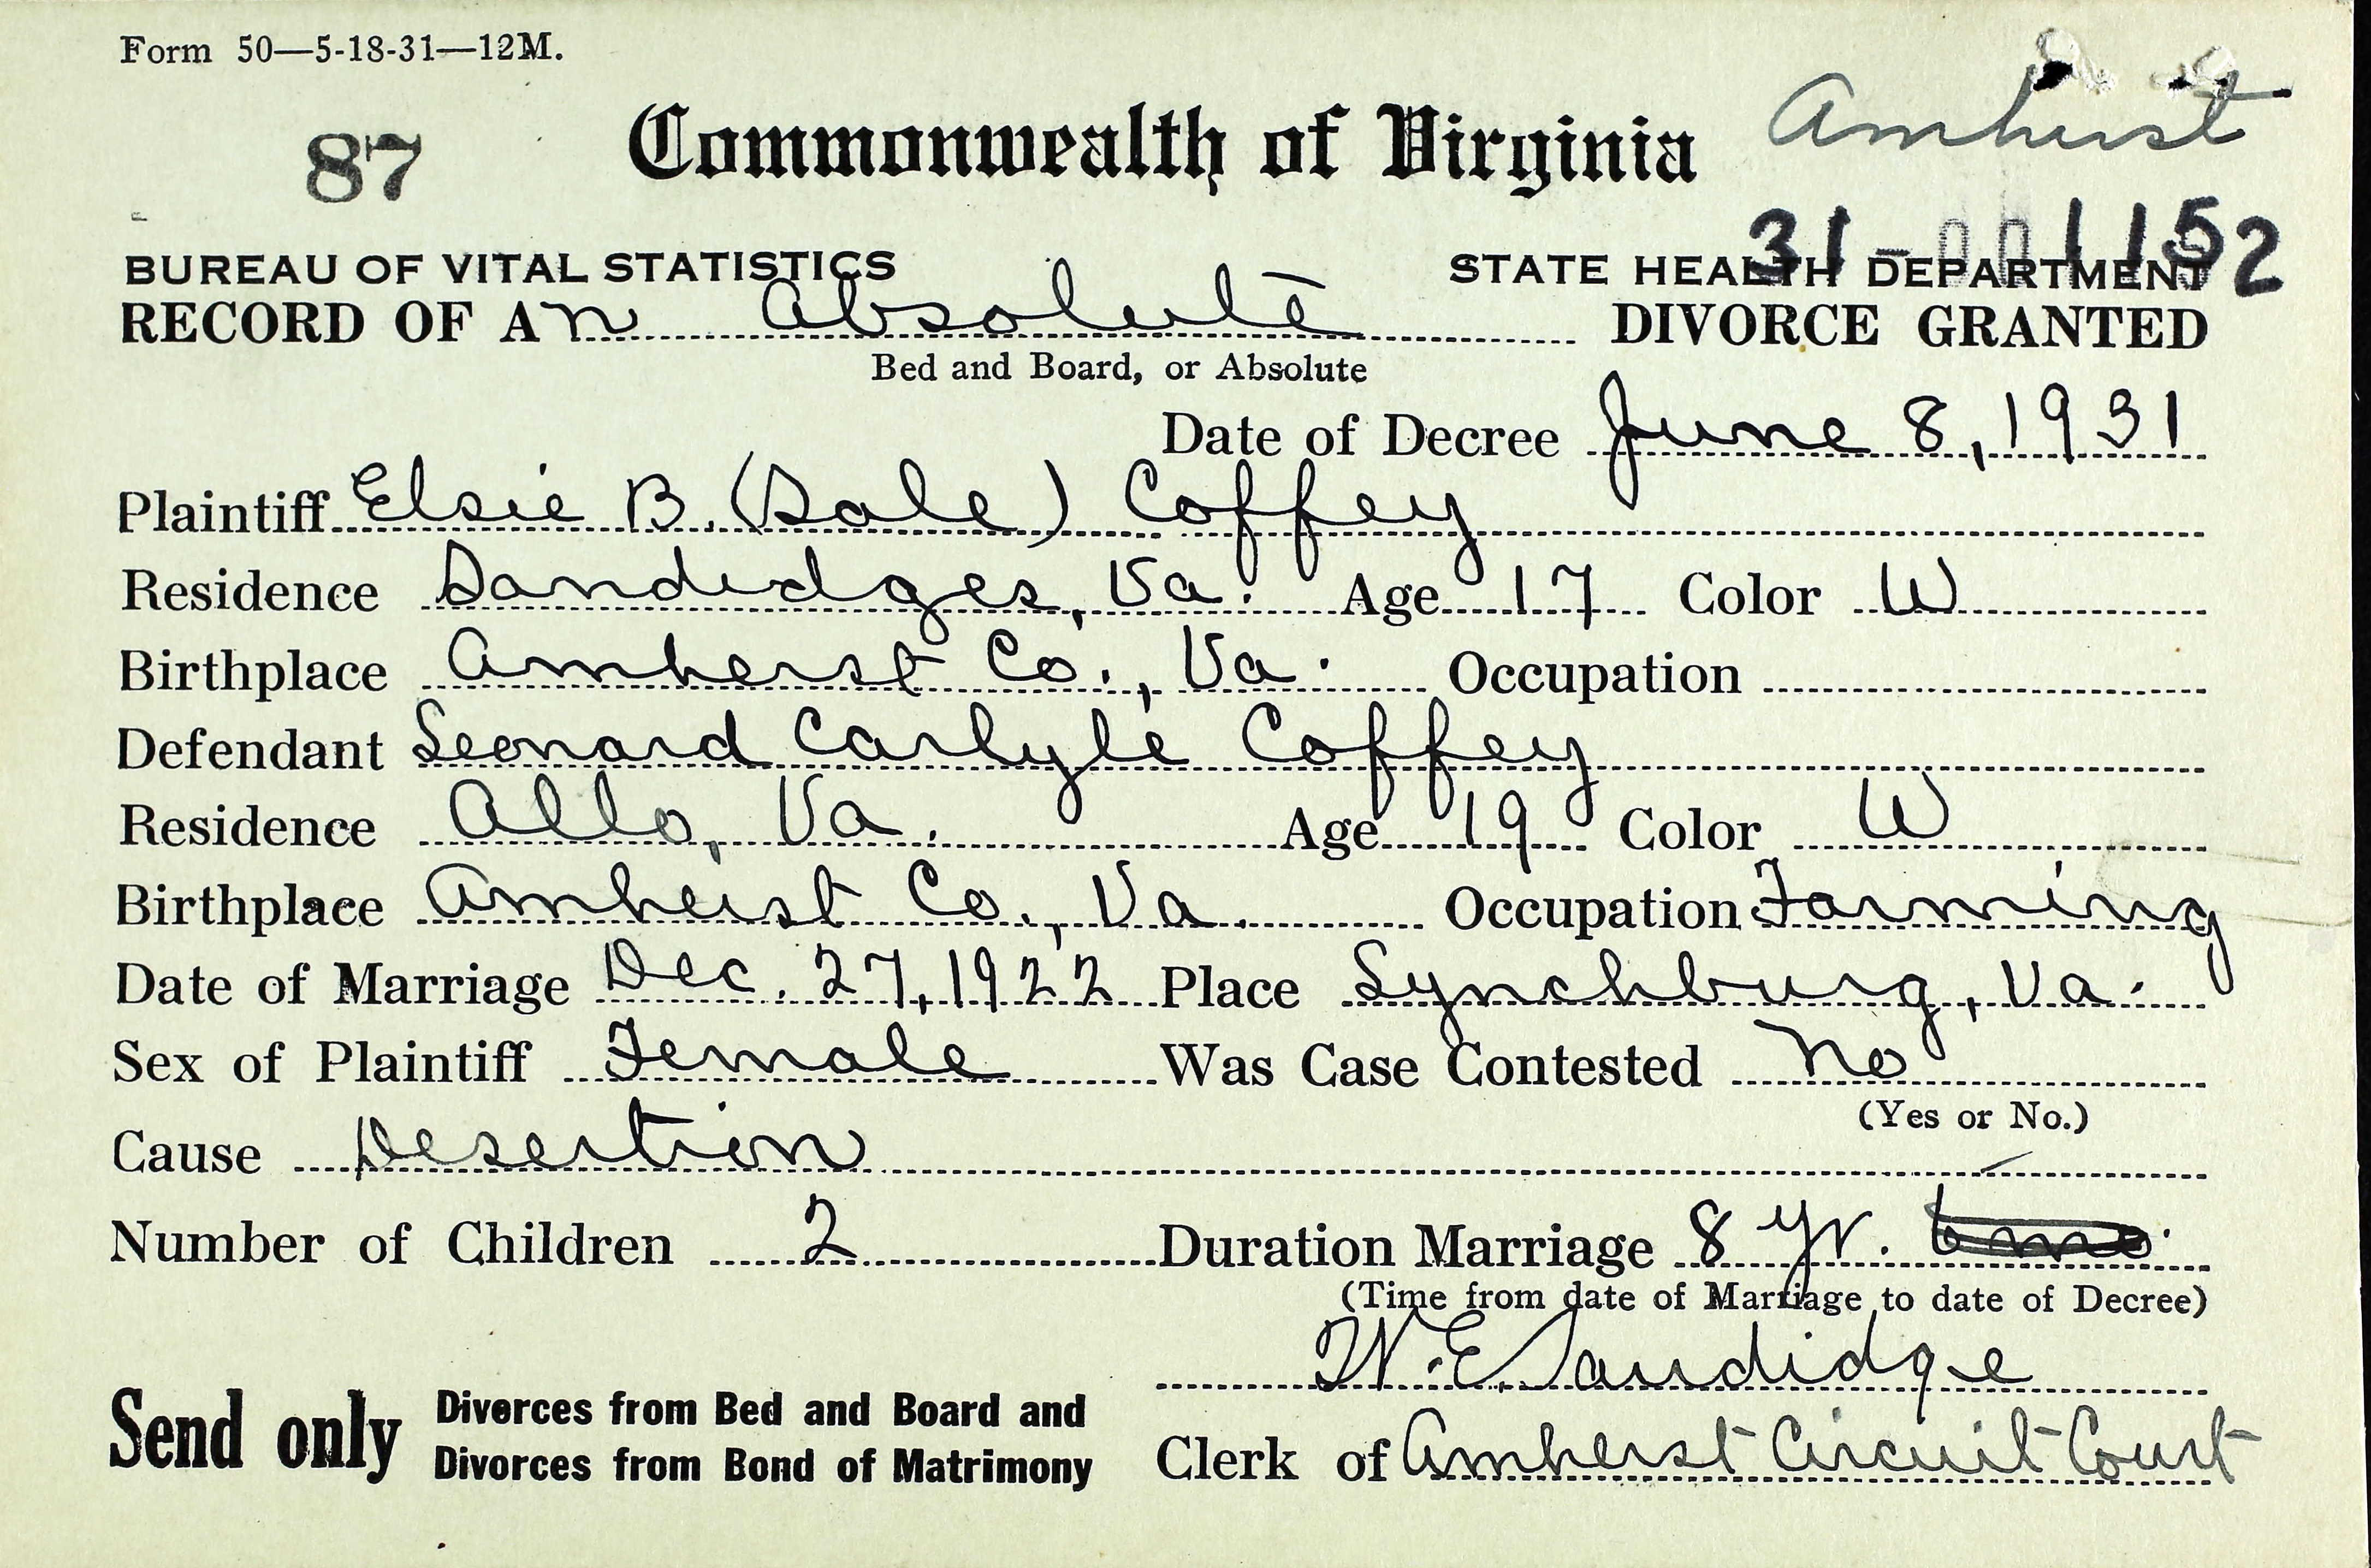 Form 50—5-18-31—12M.
Amherst
87 Commonwealth of Virginia
31-001152
BUREAU OF VITAL STATISTICS STATE HEALTH DEPARTMENT
RECORD OF An Absolute DIVORCE GRANTED
Bed and Board, or Absolute
Date of Decree June 8, 1931
Plaintiff Elsie B. (Sale) Coffey
Residence Sandidges, Va. Age 17 Color W
Birthplace Amherst Co., Va. Occupation
Defendant Leonard Carlyle Coffey
Residence Allo, Va. Age 19 Color W
Birthplace Amherst Co., Va. Occupation Farming
Date of Marriage Dec. 27, 1922 Place Lynchburg, Va.
Sex of Plaintiff Female Was Case Contested No
(Yes or No.)
Cause Desertion
Number of Children 2 Duration Marriage 8 yr. 6 mo.
(Time from date of Marriage to date of Decree)
W. E. Sandidge
Send only Divorces from Bed and Board and
Divorces from Bond of Matrimony
Clerk of Amherst Circuit Court